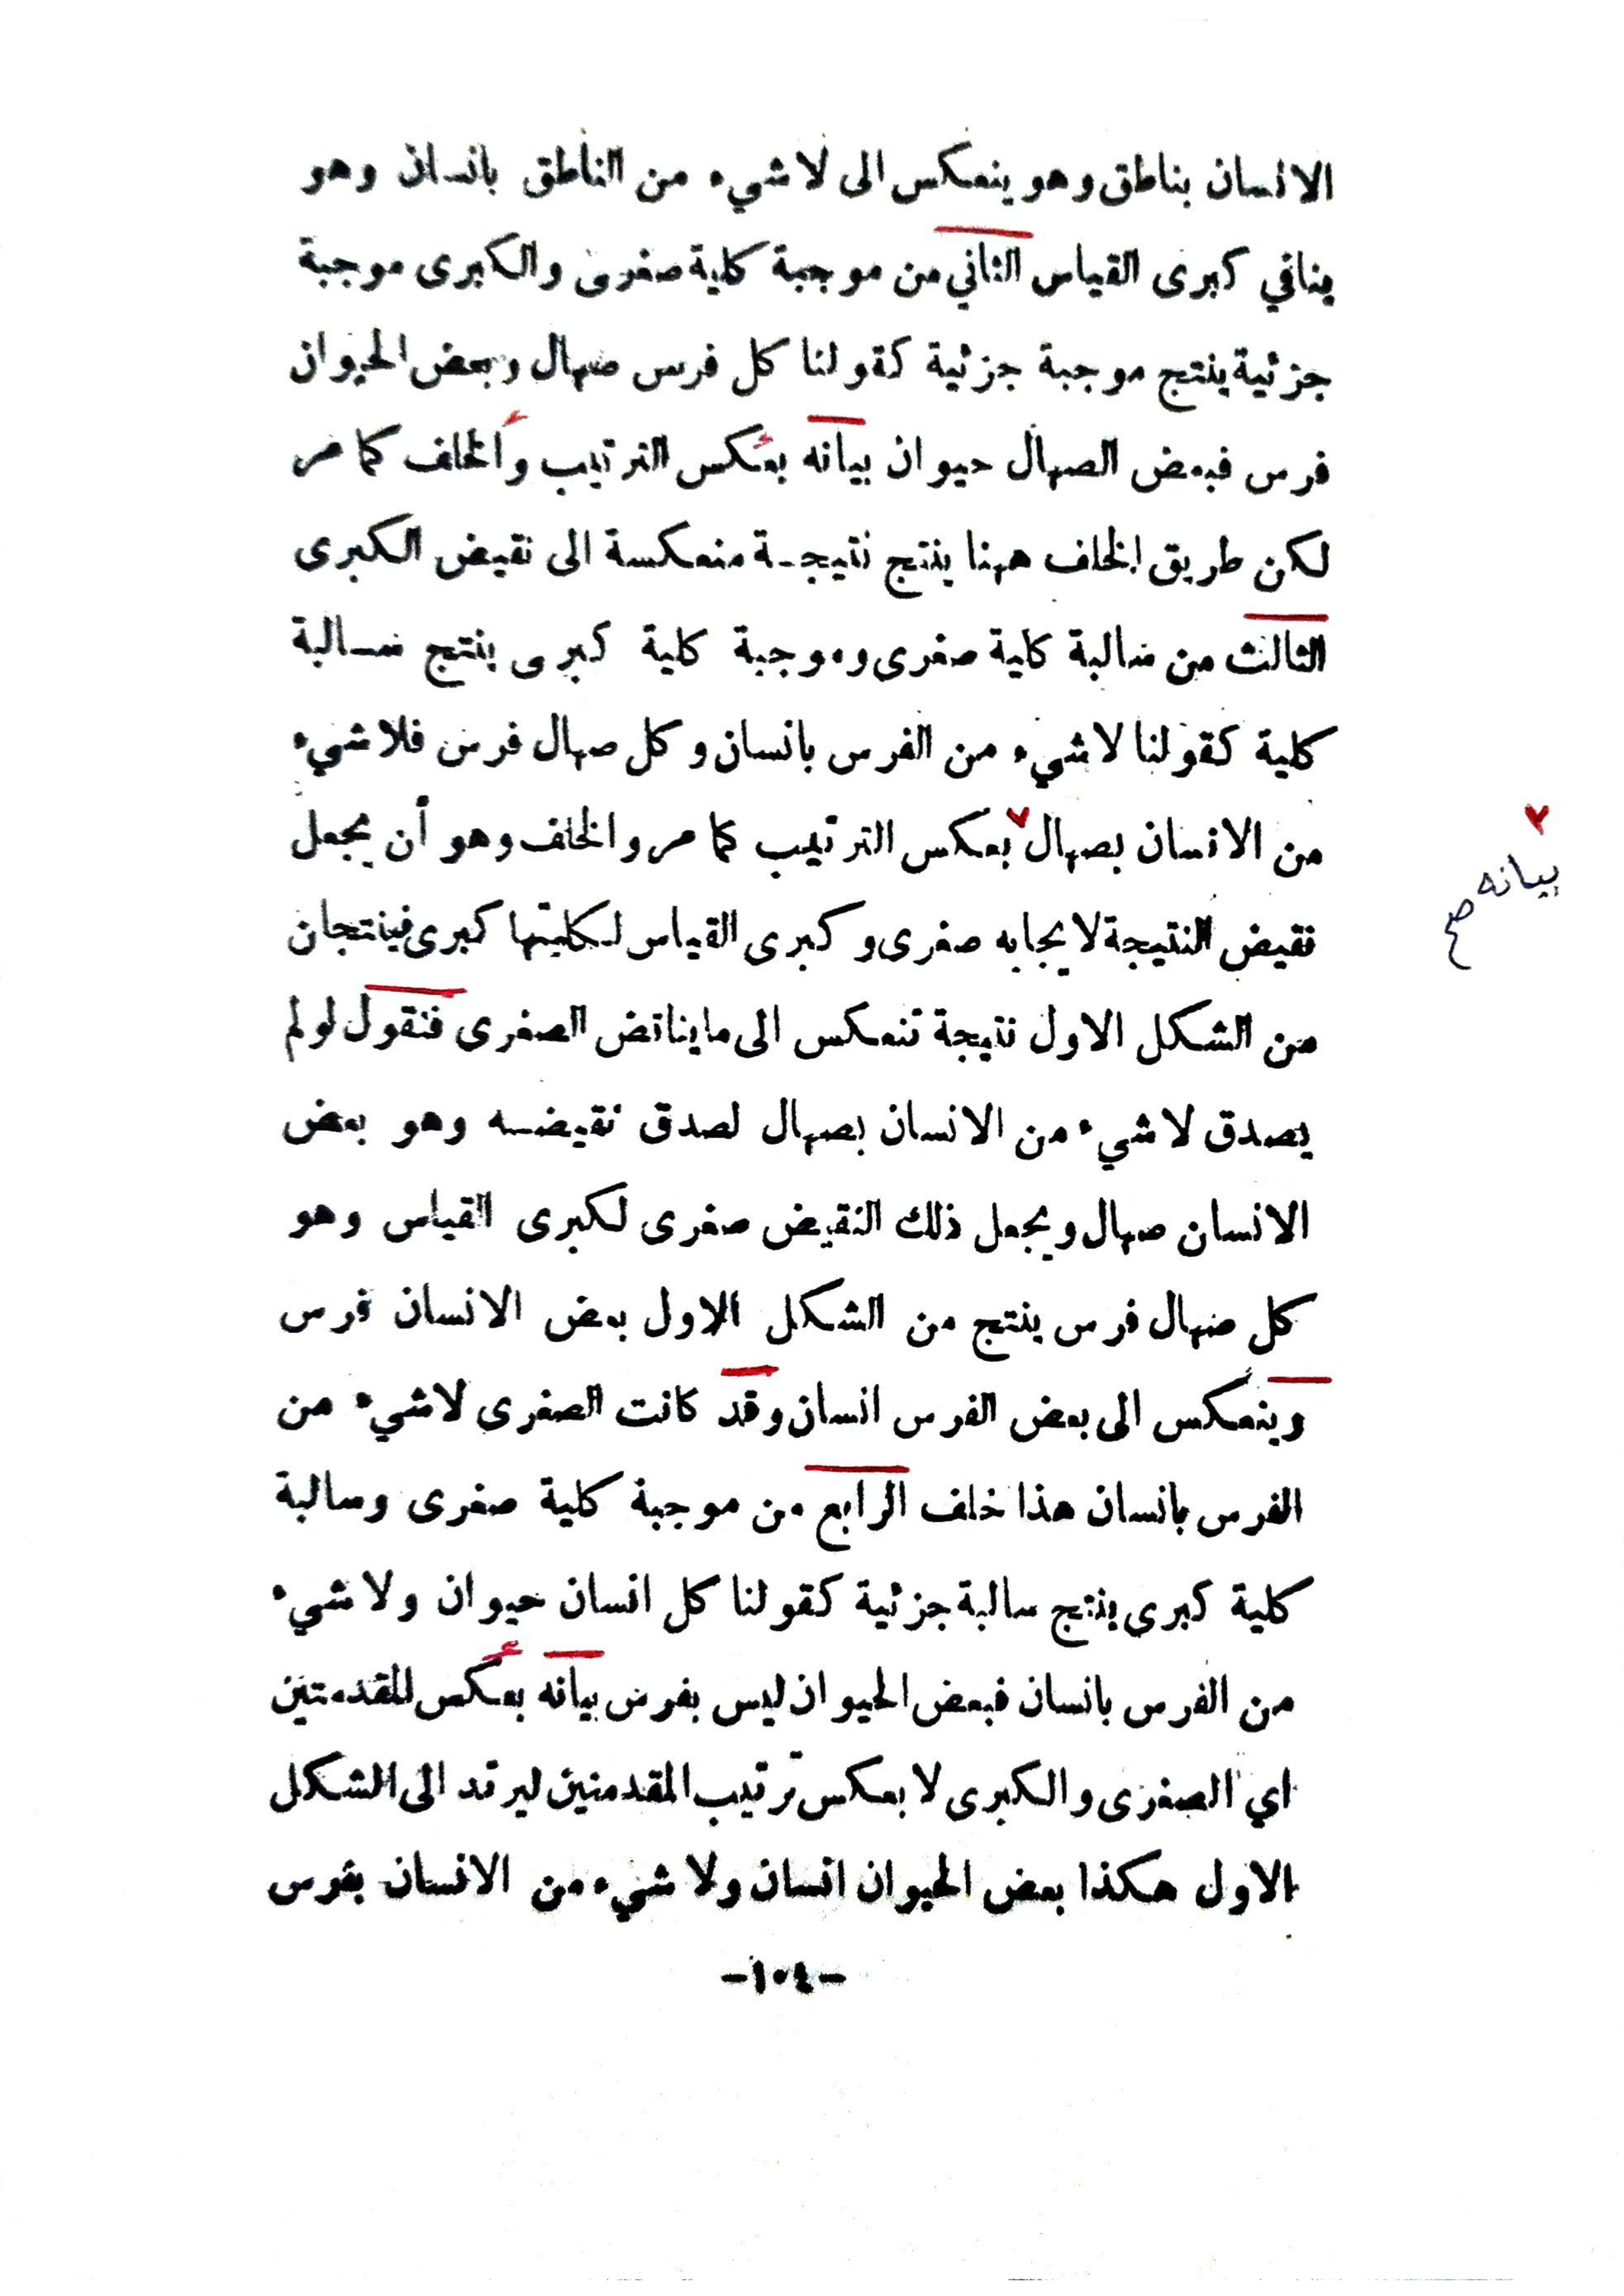 الانسان بناطق وهو ينعكس الى لا شيء من الناطق بانسان وهو
ينافي كبرى القياس الثاني من موجبة كلية صغرى والكبرى موجبة
جزئية ينتج موجبة جزئية كقولنا كل فرس صهال وبعض الحيوان
فرس فبعض الصهال حيوان بيانه بعكس الترتيب والخلف كما مر
لكن طريق الخلف ههنا ينتج نتيجة منعكسة الى نقيض الكبرى
الثالث من سالبة كلية صغرى وموجبة كلية كبرى ينتج سالبة
كلية كقولنا لا شيء من الفرس بانسان وكل صهال فرس فلا شيء
من الانسان بصهال ٢ بعكس الترتيب كما مر والخلف وهو أن يجعل
٢
بيانه صح
نقيض النتيجة لايجابه صغرى وكبرى القياس لكليتها كبرى فينتجان
من الشكل الاول نتيجة تنعكس الى ما يناقض الصغرى فنقول لو لم
يصدق لا شيء من الانسان بصهال لصدق نقيضه وهو بعض
الانسان صهال ويجعل ذلك النقيض صغرى لكبرى القياس وهو
كل صهال فرس ينتج من الشكل الاول بعض الانسان فرس
وينعكس الى بعض الفرس انسان وقد كانت الصغرى لا شيء من
الفرس بانسان هذا خلف الرابع من موجبة كلية صغرى وسالبة
كلية كبرى ينتج سالبة جزئية كقولنا كل انسان حيوان ولا شيء
من الفرس بانسان فبعض الحيوان ليس بفرس بيانه بعكس المقدمتين
اي الصغرى والكبرى لا بعكس ترتيب المقدمتين ليرتد الى الشكل
الاول هكذا بعض الحيوان انسان ولا شيء من الانسان بفرس
-١٠٤-